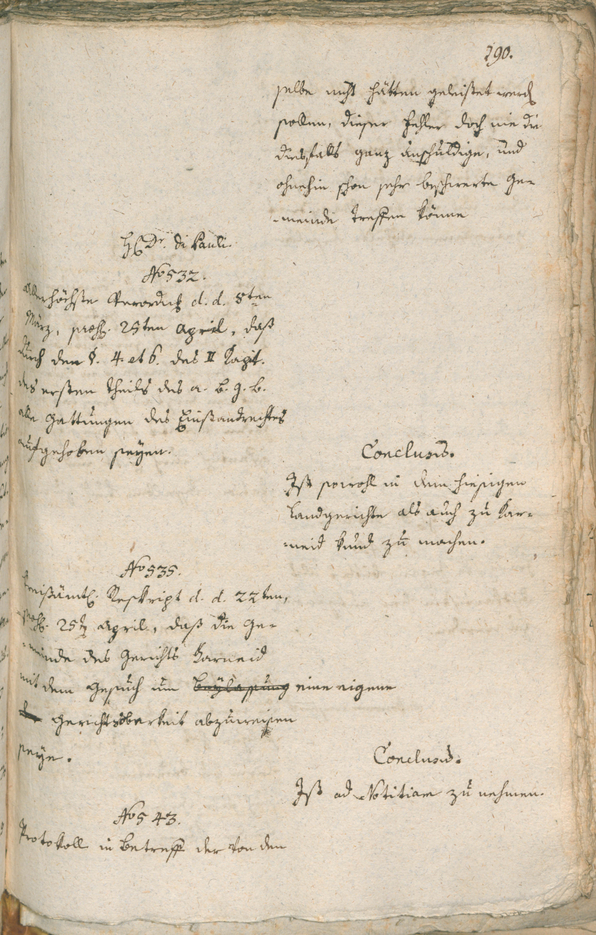 190.
selbe nicht hätten geleistet werdn
sollen, dieser Fehler doch nie die
diesfalls ganz unschuldige, und
ohnehin schon sehr beschwerte Ge-
meinde treffen könne
H: Dr. di Pauli.
No 532.
Allerhöchste Verordng d. d. 5ten
März, präs. 25ten April, daß
durch den §. 4. et 6. des II Kapit.
des ersten Theils des a. b. g. b.
alle Gattungen des Einstandrechtes
aufgehoben seyen.
Conclusũ.
Ist sowohl in dem hiesigen
Landgerichte als auch zu Kar-
neid kund zu machen.
No 535.
Kreisämtl. Reskript d. d. 22ten,
präs. 25tn April, daß die Ge-
meinde des Gerichts Karneid
mit dem Gesuch um eine eigene
Gerichtsbarkeit abzuweisen
seye.
Conclusũ.
Ist ad Notitiam zu nehmen.
No 543.
Protokoll in Betreff der von den